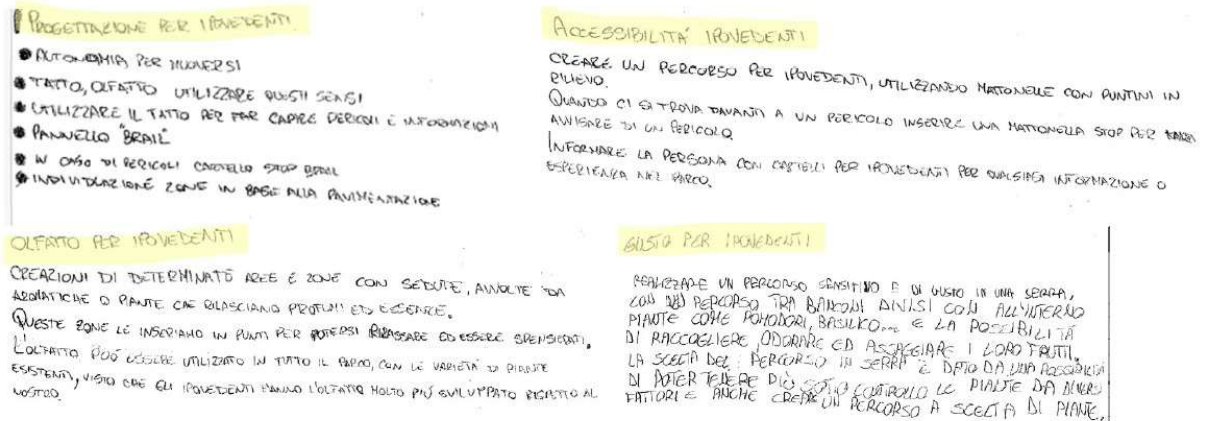 PROGETTAZIONE PER IPOVEDENTI
AUTONOMIA PER MUOVERSI
TATTO, OLFATTO UTILIZZARE QUESTI SENSI
UTILIZZARE IL TATTO PER FAR CAPIRE PERICOLI E INFORMAZIONI
PANNELLO "BRAIL"
IN CASO DI PERICOLI CARTELLO STOP BRAIL
INDIVIDUAZIONE ZONE IN BASE ALLA PAVIMENTAZIONE
ACCESSIBILITA' IPOVEDENTI
CREARE UN PERCORSO PER IPOVEDENTI, UTILIZZANDO MATTONELLE CON PUNTINI IN
RILIEVO.
QUANDO CI SI TROVA DAVANTI A UN PERICOLO INSERIRE UNA MATTONELLA STOP PER
AVVISARE DI UN PERICOLO.
INFORMARE LA PERSONA CON CARTELLI PER IPOVEDENTI PER QUALSIASI INFORMAZIONE O
ESPERIENZA NEL PARCO.
OLFATTO PER IPOVEDENTI
CREAZIONI DI DETERMINATE AREE E ZONE CON SEDUTE, AVVOLTE DA
AROMATICHE O PIANTE CHE RILASCIANO PROFUMI ED ESSENZE.
QUESTE ZONE LE INSERIAMO IN PUNTI PER POTERSI RILASSARE ED ESSERE SPENSIERATI.
L'OLFATTO PUÓ ESSERE UTILIZATO IN TUTTO IL PARCO, CON LE VARIETÀ DI PIANTE
ESISTENTI, VISTO CHE GLI IPOVEDENTI HANNO L'OLFATTO MOLTO PIÙ SVILUPPATO RISPETTO AL
NOSTRO.
GUSTO PER IPOVEDENTI
REALIZZARE UN PERCORSO SENSITIVO E DI GUSTO IN UNA SERRA,
CON UN PERCORSO TRA BANCONI DIVISI CON ALL'INTERNO
PIANTE COME POMODORI, BASILICO... E LA POSSIBILITÀ
DI RACCOGLIERE, ODORARE ED ASSAGGIARE I LORO FRUTTI.
LA SCELTA DEL PERCORSO IN SERRA È DATO DA UNA POSSIBILITÀ
DI POTER TENERE PIÙ SOTTO CONTROLLO LE PIANTE DA DIVERSI
FATTORI E ANCHE CREARE UN PERCORSO A SCELTA DI PIANTE.